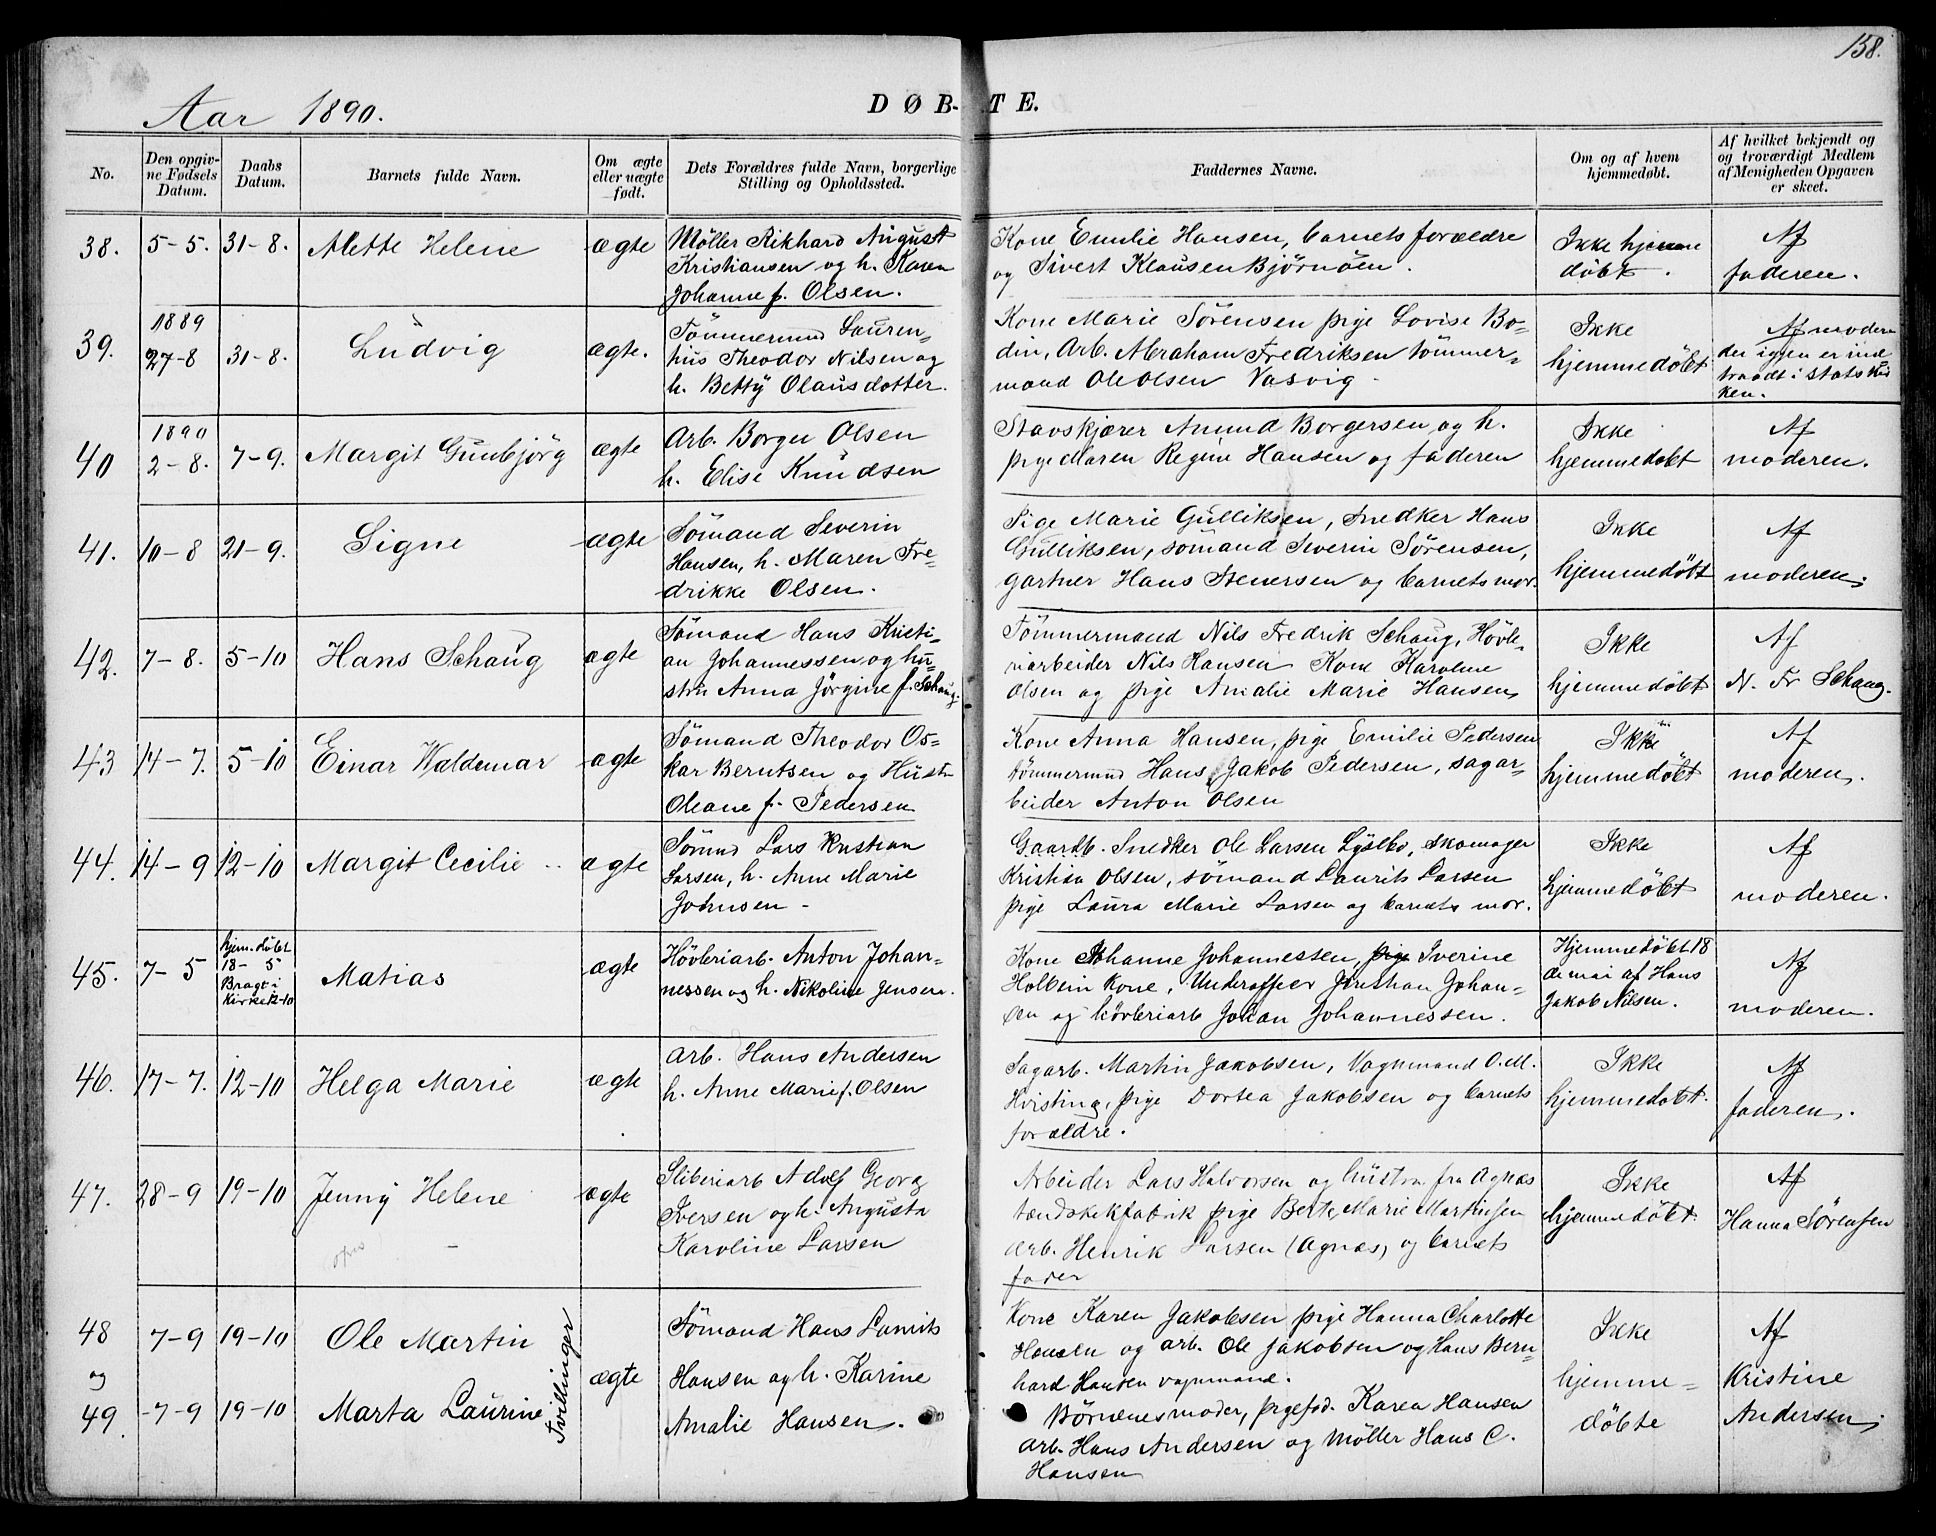 158.
Aar 1890.
DØBTE.
No.
Den opgivne Fødsels Datum.
Daabs Datum.
Barnets fulde Navn.
Om ægte eller uægte født.
Dets Forældres fulde Navn, borgerlige Stilling og Opholdssted.
Faddernes Navne.
Om og af hvem hjemmedøbt.
Af hvilket bekjendt og og troværdigt Medlem af Menigheden Opgaven er skeet.
38. 5-5. 31-8. Alette Helene ægte
Møller Rikhard August
Kristiansen og h. Karen
Johanne f. Olsen.
Kone Emilie Hansen, barnets forældre
og Sivert Klausen Bjørnöen.
Ikke hjemme
döbt.
Af
faderen.
39. 1889
27-8 31-8. Ludvig ægte.
Tömmermand Lauren-
tius Theodor Nilsen og
h. Betty Olausdotter.
Kone Marie Sörensen pige Lovise Bo-
din, Arb. Abraham Fredriksen tömmer-
mand Ole Olsen Vasvig.
Ikke
hjemmedöbt
Af modere
der igjen er ind
traadt i statskir
ken.
40 1890
2-8. 7-9. Margit Gunbjörg ægte
Arb. Borger Olsen
h. Elise Knudsen
Stavskjærer Amund Borgersen og h.
pige Maren Regine Hansen og faderen
Ikke
hjemmedöbt
Af
moderen.
41. 10-8 21-9. Signe ægte
Sömand Severin
Hansen, h. Maren Fre-
drikke Olsen.
Pige Marie Gulliksen, Snedker Hans
Gulliksen, sömand Severin Sörensen,
gartner Hans Stenersen og barnets mor.
Ikke
hjemmedöbt
Af
moderen.
42. 7-8. 5-10 Hans Schaug ægte
Sömand Hans Kristi-
an Johannessen og hu-
stru Anna Jörgine f. Schaug
Tömmermand Nils Fredrik Schaug, Hövle-
riarbeider Nils Hansen Kone Karoline
Olsen og pige Amalie Marie Hansen
Ikke
hjemmedöbt
Af
N. Fr Schaug.
43 14-7. 5-10 Einar Waldemar ægte
Sömand Theodor Os-
kar Berntsen og Hustr
Oleane f. Pedersen
Kone Anna Hansen, pige Emilie Pedersen
tömmermand Hans Jakob Pedersen, sagar-
beider Anton Olsen
Ikke
hjemmedöbt
Af
moderen.
44. 14-9 12-10 Margit Cecilie ægte
Sömand Lars Kristian
Larsen, h. Anne Marie
Johnsen -
Gaardb. Snedker Ole Larsen Lysebo, skomager
Kristian Olsen, sömand Laurits Larsen
pige Laura Marie Larsen og barnets mor.
Ikke
hjemmedöbt
Af
moderen.
45. 7-5 hjem. döbt
18-5
Bragt i
Kirken 12-10
Matias ægte
Hövleriarb. Anton Johan-
nessen og h. Nikoline Jensen.
Kone Johanne Johannessen, pige Iverine
Holbein kone, Underofficer Kristian Johan-
sen og hövleriarb Johan Johannessen.
Hjemmedöbt 18
de mai af Hans
Jakob Nilsen.
Af
moderen.
46. 17-7. 12-10 Helga Marie ægte
Arb. Hans Andersen
h. Anne Marie f. Olsen
Sagarb. Martin Jakobsen, Vognmand O. M.
pige Dortea Jakobsen og barnets
forældre.
Ikke
hjemmedöbt.
Af
faderen.
47. 28-9 19-10 Jenny Helene ægte
Sliberiarb Adolf Georg
Iversen og h. Augusta
Karoline Larsen
Arbeider Lars Halvorsen og hustru fra Agnæs
tændstikfabrik pige Berte Marie Martinsen
arb. Henrik Larsen (Agnæs) og barnets
fader
Ikke
hjemmedöbt
Af
Hanna Sörensen
48 7-9 19-10 Ole Martin
og
49. 7-9 19-10 Marta Laurine
Tvillinger
ægte
Sömand Hans Laurits
Hansen og h. Karine
Amalie Hansen.
Kone Karen Jakobsen pige Hanna Charlotte
Hansen og arb. Ole Jakobsen og Hans Bern-
hard Hansen vognmand.
Börnenes moder, pige Karen Hansen
arb. Hans Andersen og Møller Hans C.
Hansen
Ikke
hjemme-
döbte
Af
Kristine
Andersen